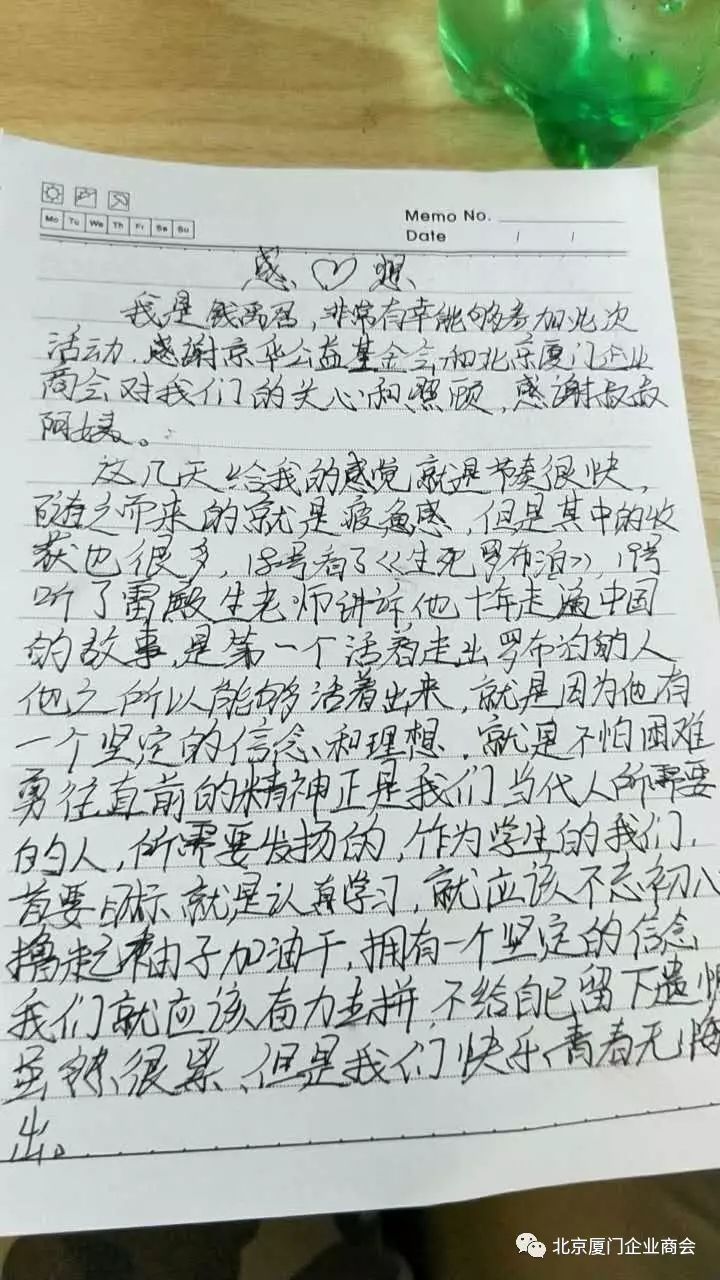 Mo Tu We Th Fr Sa Su
Memo No.
Date / /
感 ♡ 想
我是钱禹君,非常有幸能够参加此次
活动.感谢京华公益基金会和北京厦门企业
商会对我们的关心和照顾,感谢叔叔
阿姨。
这几天给我的感觉就是节奏很快,
随之而来的就是疲惫感,但是其中的收
获也很多,18号看了《生死罗布泊》,19号
听了雷殿生老师讲诉他十年走遍中国
的故事,是第一个活着走出罗布泊的人
他之所以能够活着出来,就是因为他有
一个坚定的信念和理想,就是不怕困难
勇往直前的精神正是我们当代人所需要
的人,所需要发扬的,作为学生的我们,
首要目标就是认真学习,就应该不忘初心
撸起袖子加油干,拥有一个坚定的信念
我们就应该奋力去拼,不给自己留下遗憾
虽然很累、但是我们快乐、青春无悔
出。
北京厦门企业商会